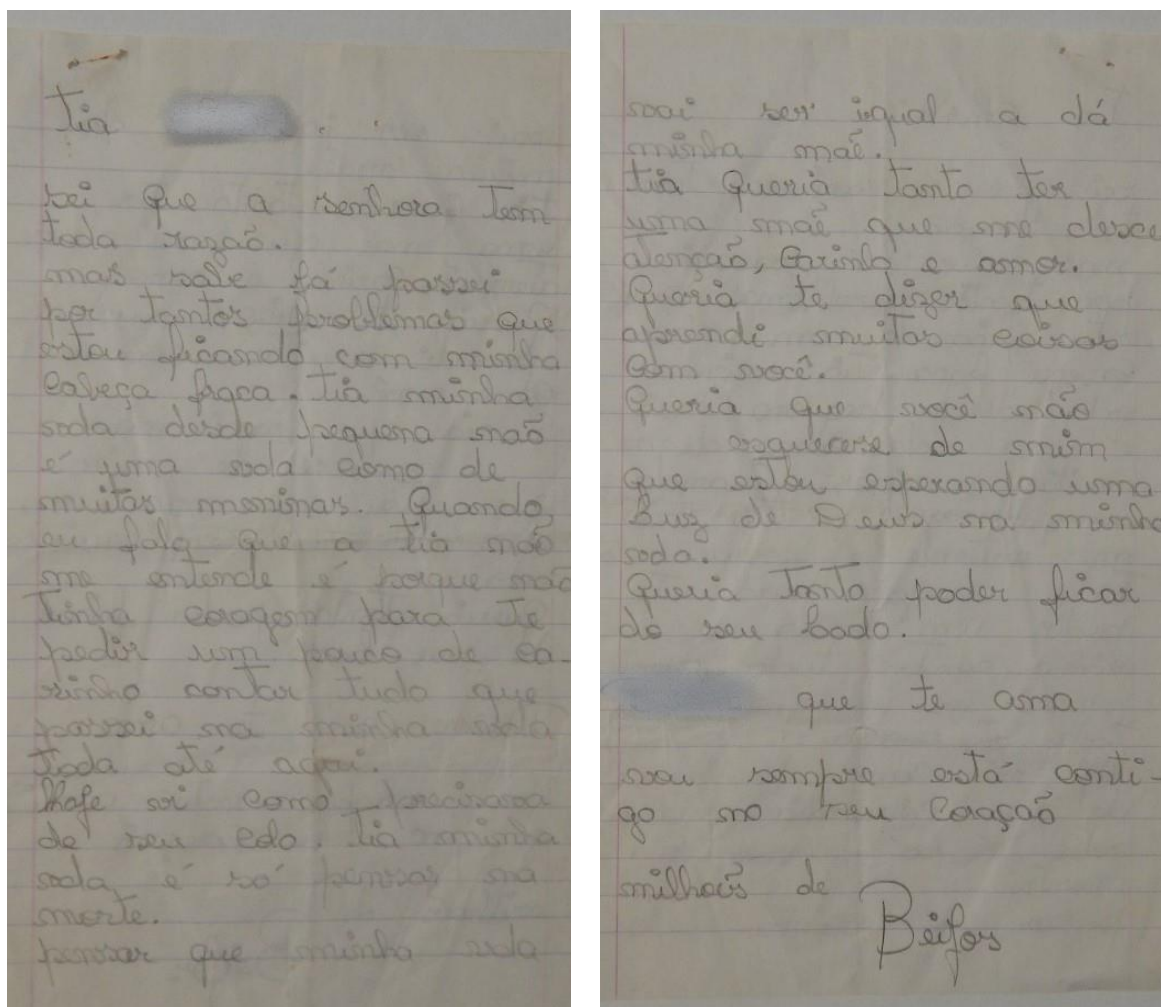 Tia
sei que a senhora Tem
toda razaõ.
mas sabe já passei
por tantos problemas que
estou ficando com minha
cabeça fraca. tia minha
vida desde pequena naõ
é uma vida como de
muitas meninas. Quando
eu falo que a tia naõ
me entende é porque naõ
Tinha coragem para Te
pedir um pouco de ca-
rinho contar tudo que
passei na minha vida
Toda até aqui.
Hoje vi como precisava
de seu
tia minha
vida é só pensar na
morte.
pensar que minha vida
vai ser igual a dá
minha maẽ.
tia Queria tanto ter
uma maẽ que me desce
atençaõ, Carinho e amor.
Queria te dizer que
aprendi muitas coisas
Com você.
Queria que você não
esquecese de mim
Que estou esperando uma
Luz de Deus na minha
vida.
Queria Tanto poder ficar
do seu lado.
que te ama
vou sempre está conti-
go no teu Coraçaõ
milhoẽs de
Beijos